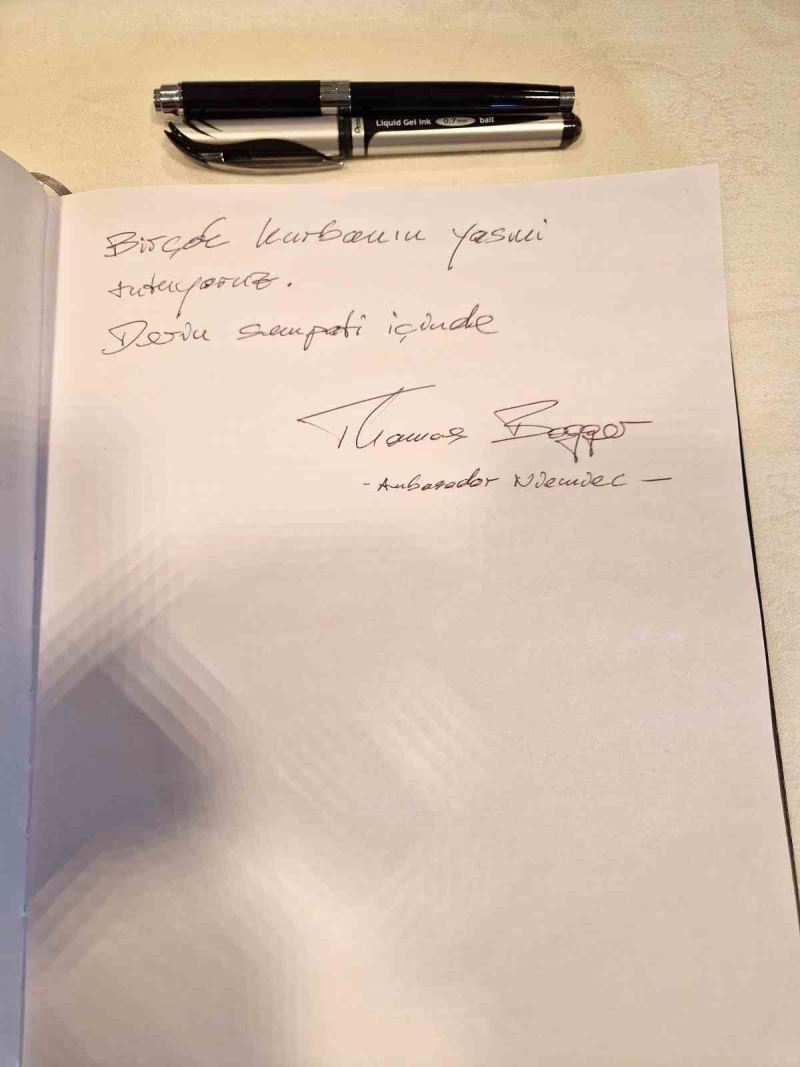 Pentel Liquid Gel Ink 0.7mm ball
Birçok kurbanın yasını
tutuyoruz.
Derin sempati içinde
Thomas Bagger
- Ambasador Niemiec -